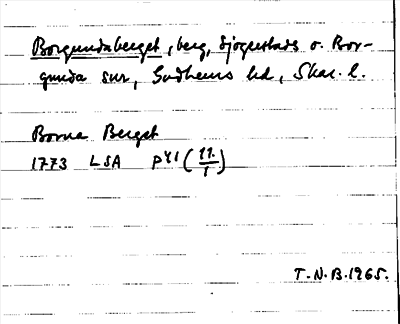 Borgundaberget, berg, Sjogerstads o. Bor-
gunda snr, Gudhems hd, Skar. l.
Borna Berget
1773 LSA P41 (11/1)
T.N.B. 1965.